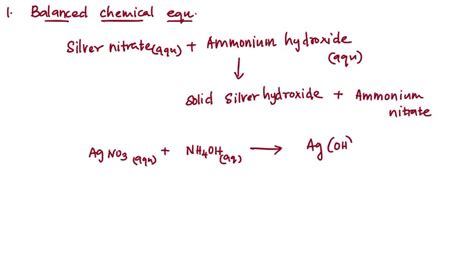 1. Balanced chemical equ.
Silver nitrate(aqu) + Ammonium hydroxide (aqu)
↓
solid Silver hydroxide + Ammonium nitrate
AgNO3 (aqu) + NH4OH (aq) → Ag(OH)